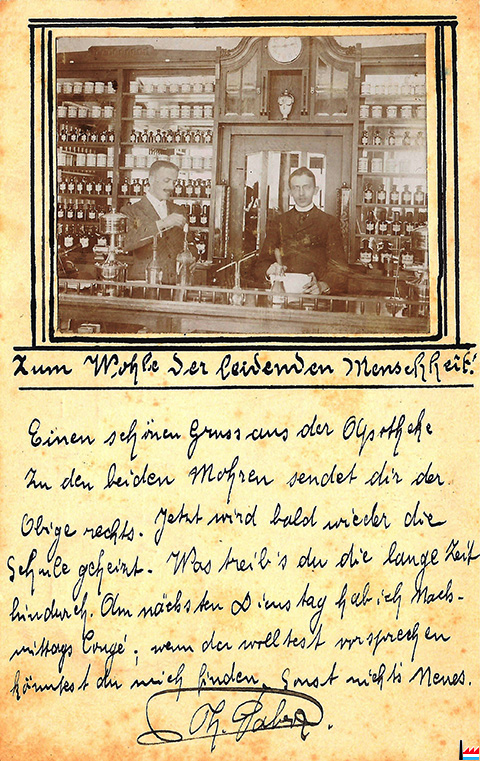 Zum Wohle der leidenden Menschheit!
Einen schönen Gruss aus der Apotheke
Zu den beiden Mohren sendet dir der
Obige rechts. Jetzt wird bald wieder die
Schule geheizt. Was treib's du die lange Zeit
hindurch. Am nächsten Dienstag hab ich Nach-
mittags Congé, wenn du wolltest vorsprechen
könntest du mich finden. Sonst nichts Neues.
Th.